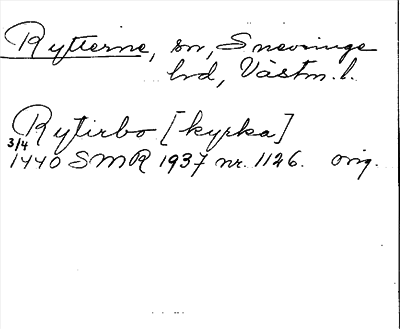 Rytterne, sn, Snevringe
hd, Västm. l.
Rytirbo [kyrka]
3/4
1440 SMR 1937 nr. 1126. orig.